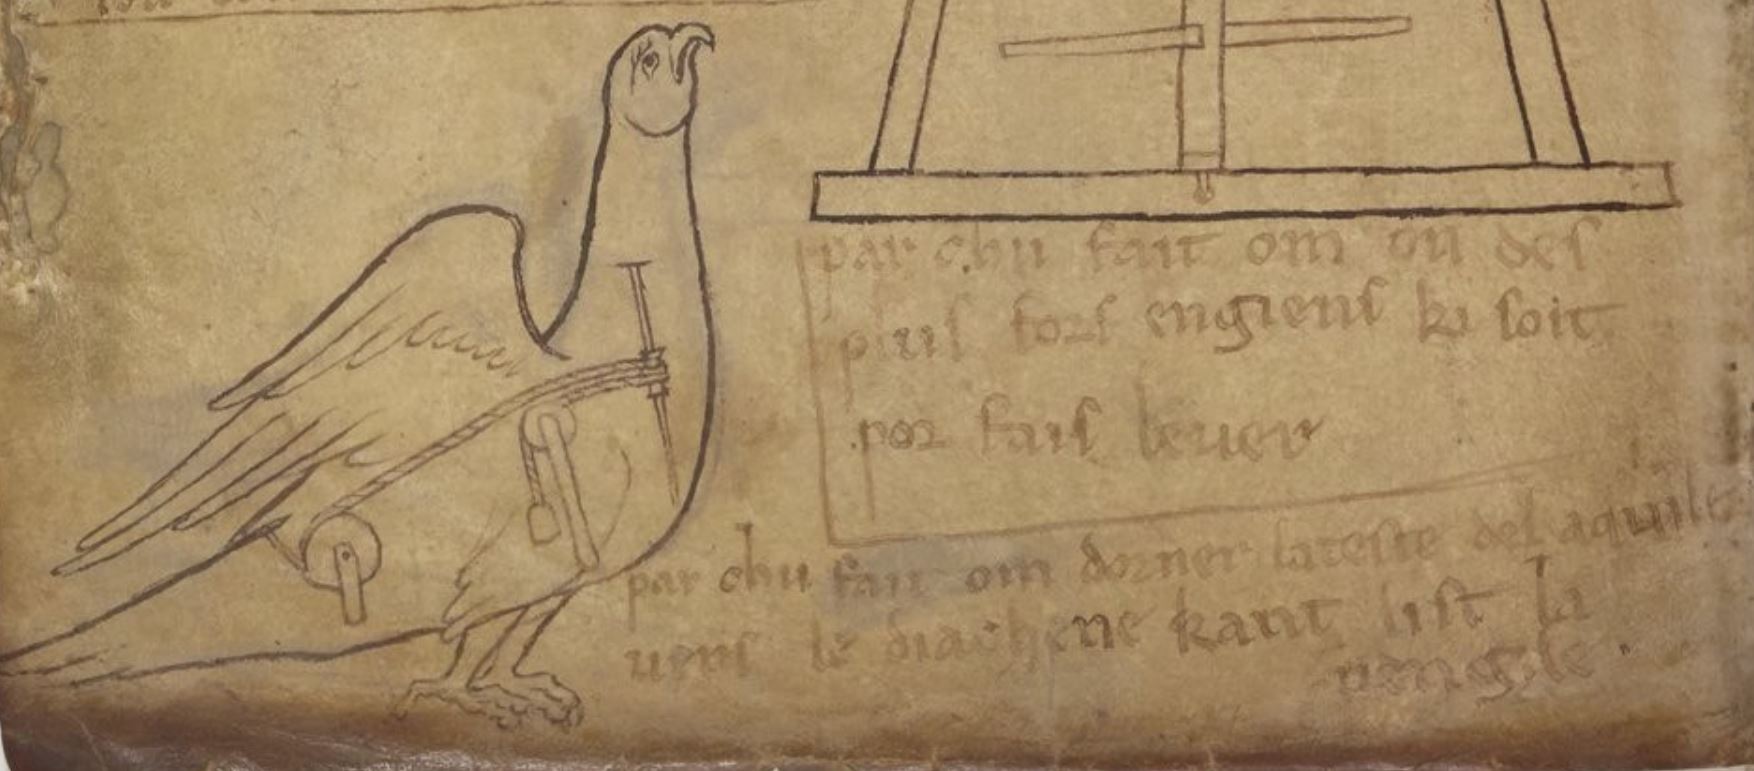 par chu fait om on des
plus fors engiens ki soit
por fais lever
par chu fait om dorner la teste del aquile
vers le diachene kant list la
vengile.